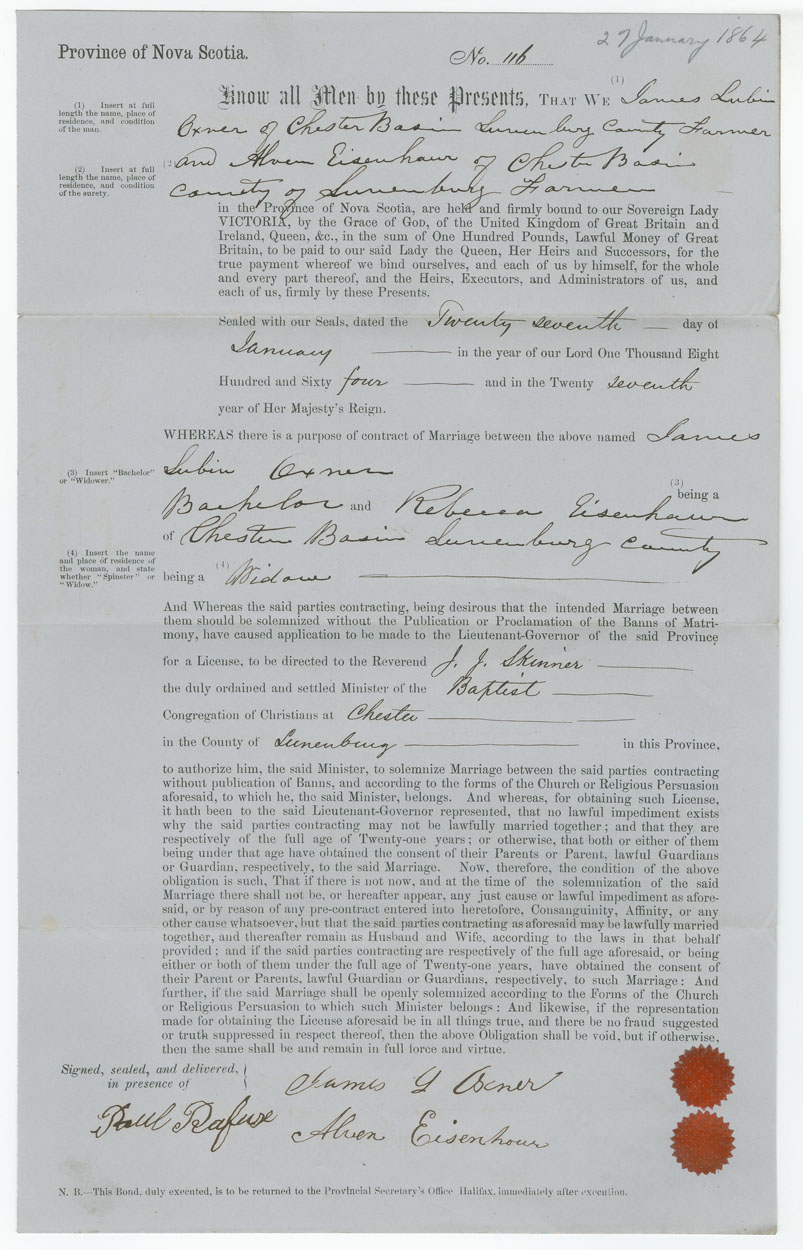 27 January 1864
Province of Nova Scotia.
No. 116
(1)
Know all Men by these Presents, THAT WE James Lubin
(1) Insert at full
length the name, place of
residence, and condition
of the man.
Oxner of Chester Basin Lunenburg County Farmer
(2) and Alven Eisenhaur of Chester Basin
(2) Insert at full
length the name, place of
residence, and condition
of the surety.
County of Lunenburg Farmer
in the Province of Nova Scotia, are held and firmly bound to our Sovereign Lady
VICTORIA, by the Grace of GOD, of the United Kingdom of Great Britain and
Ireland, Queen, &c., in the sum of One Hundred Pounds, Lawful Money of Great
Britain, to be paid to our said Lady the Queen, Her Heirs and Successors, for the
true payment whereof we bind ourselves, and each of us by himself, for the whole
and every part thereof, and the Heirs, Executors, and Administrators of us, and
each of us, firmly by these Presents.
Sealed with our Seals, dated the Twenty seventh day of
January in the year of our Lord One Thousand Eight
Hundred and Sixty four and in the Twenty seventh
year of Her Majesty's Reign.
WHEREAS there is a purpose of contract of Marriage between the above named James
Lubin Oxner
(3) Insert "Bachelor"
or "Widower."
(3)
being a
Bachelor and Rebecca Eisenhaur
of Chester Basin Lunenburg County
(4) Insert the name
and place of residence of
the woman, and state
whether "Spinster" or
"Widow."
being a (4) Widow
And Whereas the said parties contracting, being desirous that the intended Marriage between
them should be solemnized without the Publication or Proclamation of the Banns of Matri-
mony, have caused application to be made to the Lieutenant-Governor of the said Province
for a License, to be directed to the Reverend J. J. Skinner
the duly ordained and settled Minister of the Baptist
Congregation of Christians at Chester
in the County of Lunenburg in this Province,
to authorize him, the said Minister, to solemnize Marriage between the said parties contracting
without publication of Banns, and according to the forms of the Church or Religious Persuasion
aforesaid, to which he, the said Minister, belongs. And whereas, for obtaining such License,
it hath been to the said Lieutenant-Governor represented, that no lawful impediment exists
why the said parties contracting may not be lawfully married together; and that they are
respectively of the full age of Twenty-one years; or otherwise, that both or either of them
being under that age have obtained the consent of their Parents or Parent, lawful Guardians
or Guardian, respectively, to the said Marriage. Now, therefore, the condition of the above
obligation is such, That if there is not now, and at the time of the solemnization of the said
Marriage there shall not be, or hereafter appear, any just cause or lawful impediment as afore-
said, or by reason of any pre-contract entered into heretofore, Consanguinity, Affinity, or any
other cause whatsoever, but that the said parties contracting as aforesaid may be lawfully married
together, and thereafter remain as Husband and Wife, according to the laws in that behalf
provided; and if the said parties contracting are respectively of the full age aforesaid, or being
either or both of them under the full age of Twenty-one years, have obtained the consent of
their Parent or Parents, lawful Guardian or Guardians, respectively, to such Marriage: And
further, if the said Marriage shall be openly solemnized according to the Forms of the Church
or Religious Persuasion to which such Minister belongs: And likewise, if the representation
made for obtaining the License aforesaid be in all things true, and there be no fraud suggested
or truth suppressed in respect thereof, then the above Obligation shall be void, but if otherwise,
then the same shall be and remain in full force and virtue.
Signed, sealed, and delivered,
in presence of
James L Oxner
Paul Rafuse
Alven Eisenhour
N. B.—This Bond, duly executed, is to be returned to the Provincial Secretary's Office Halifax, immediately after execution.